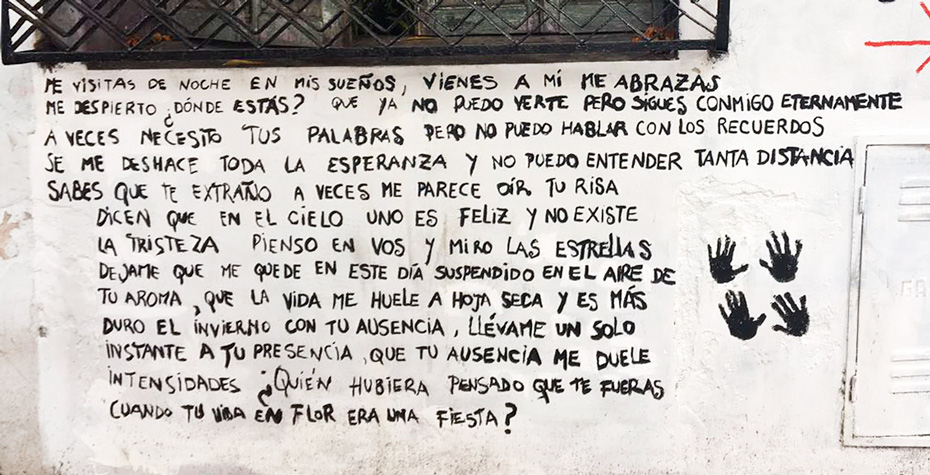 ME VISITAS DE NOCHE EN MIS SUEÑOS, VIENES A MÍ ME ABRAZAS
ME DESPIERTO ¿DÓNDE ESTÁS? QUE YA NO PUEDO VERTE PERO SIGUES CONMIGO ETERNAMENTE
A VECES NECESITO TUS PALABRAS PERO NO PUEDO HABLAR CON LOS RECUERDOS
SE ME DESHACE TODA LA ESPERANZA Y NO PUEDO ENTENDER TANTA DISTANCIA
SABES QUE TE EXTRAÑO A VECES ME PARECE OÍR TU RISA
DICEN QUE EN EL CIELO UNO ES FELIZ Y NO EXISTE
LA TRISTEZA PIENSO EN VOS Y MIRO LAS ESTRELLAS
DEJAME QUE ME QUEDE EN ESTE DÍA SUSPENDIDO EN EL AIRE DE
TU AROMA, QUE LA VIDA ME HUELE A HOJA SECA Y ES MÁS
DURO EL INVIERNO CON TU AUSENCIA, LLÉVAME UN SOLO
INSTANTE A TU PRESENCIA, QUE TU AUSENCIA ME DUELE
INTENSIDADES ¿QUIÉN HUBIERA PENSADO QUE TE FUERAS
CUANDO TU VIDA EN FLOR ERA UNA FIESTA?